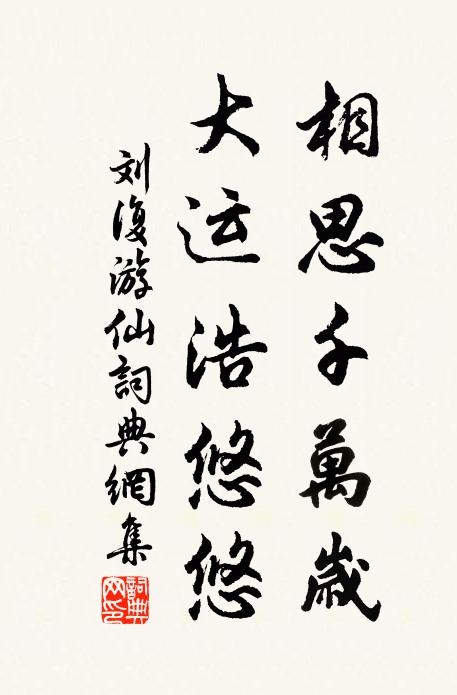 相思千萬歲
大运浩悠悠
刘復游仙詞典網集
詞典網印